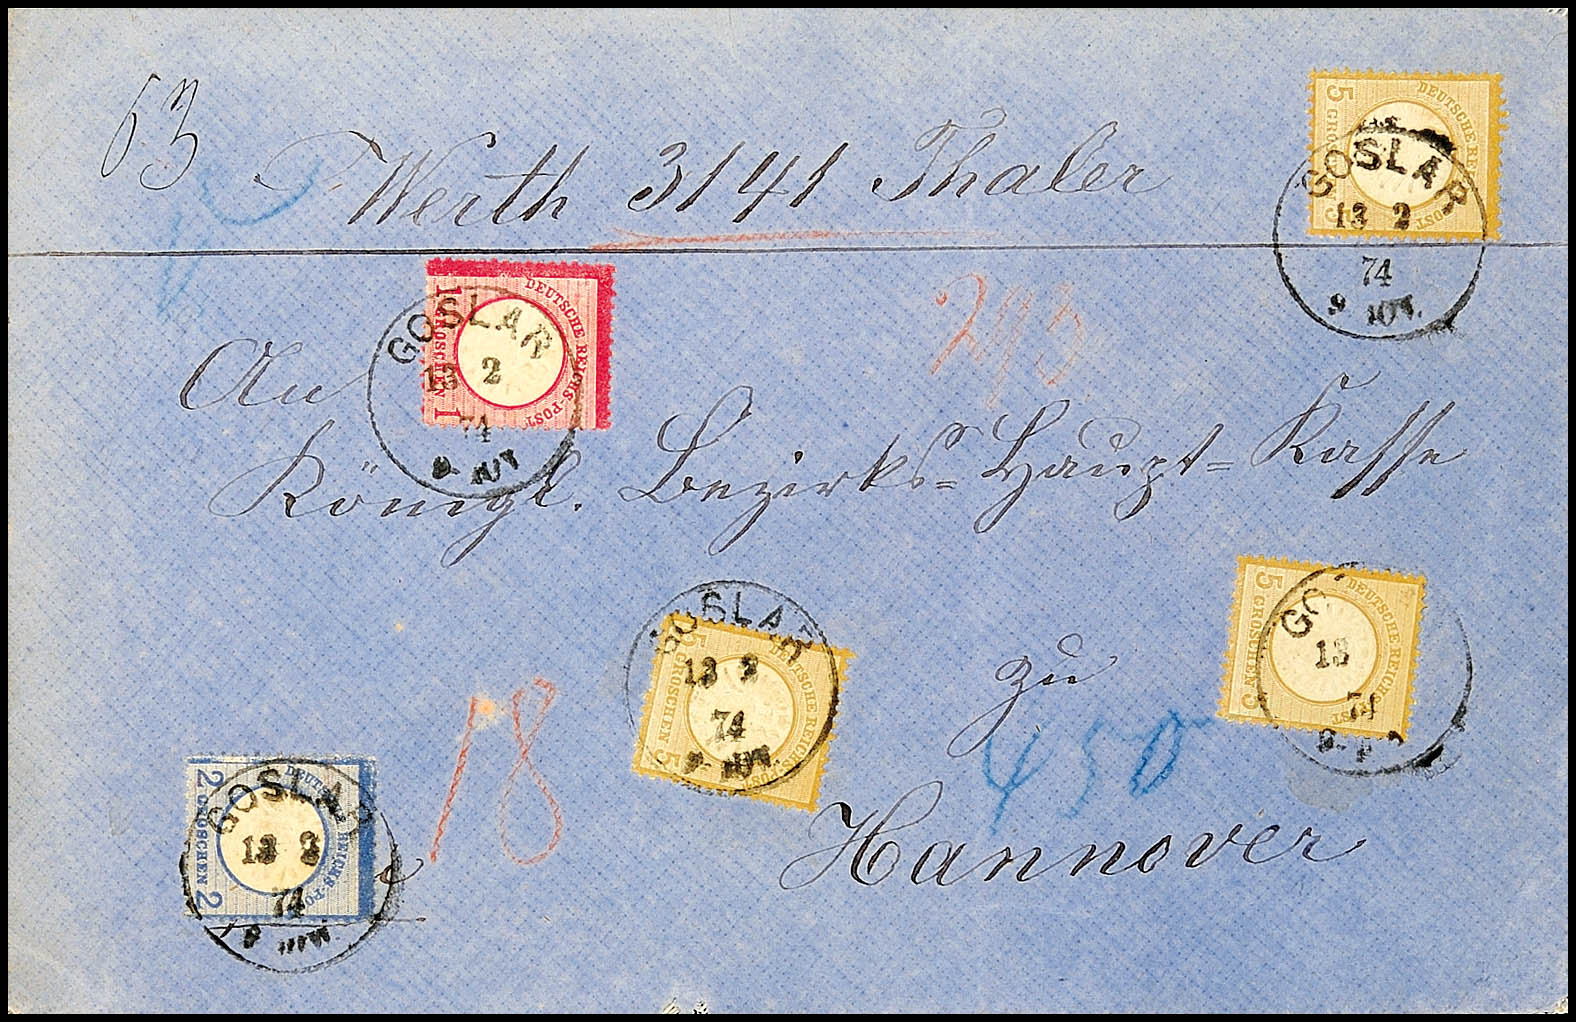 63
Werth 3141 Thaler
5 GROSCHEN 5
DEUTSCHE REICHS-POST
GOSLAR
13 2
74
9
1 GROSCHEN 1
DEUTSCHE REICHS-POST
GOSLAR
13 2
74
An
Königl. Bezirks=Haupt=Kasse
5 GROSCHEN 5
DEUTSCHE REICHS-POST
GOSLAR
13 2
74
5 GROSCHEN 5
DEUTSCHE REICHS-POST
13
74
zu
450
18
Hannover
2 GROSCHEN 2
DEUTSCHE REICHS-POST
GOSLAR
13 2
74